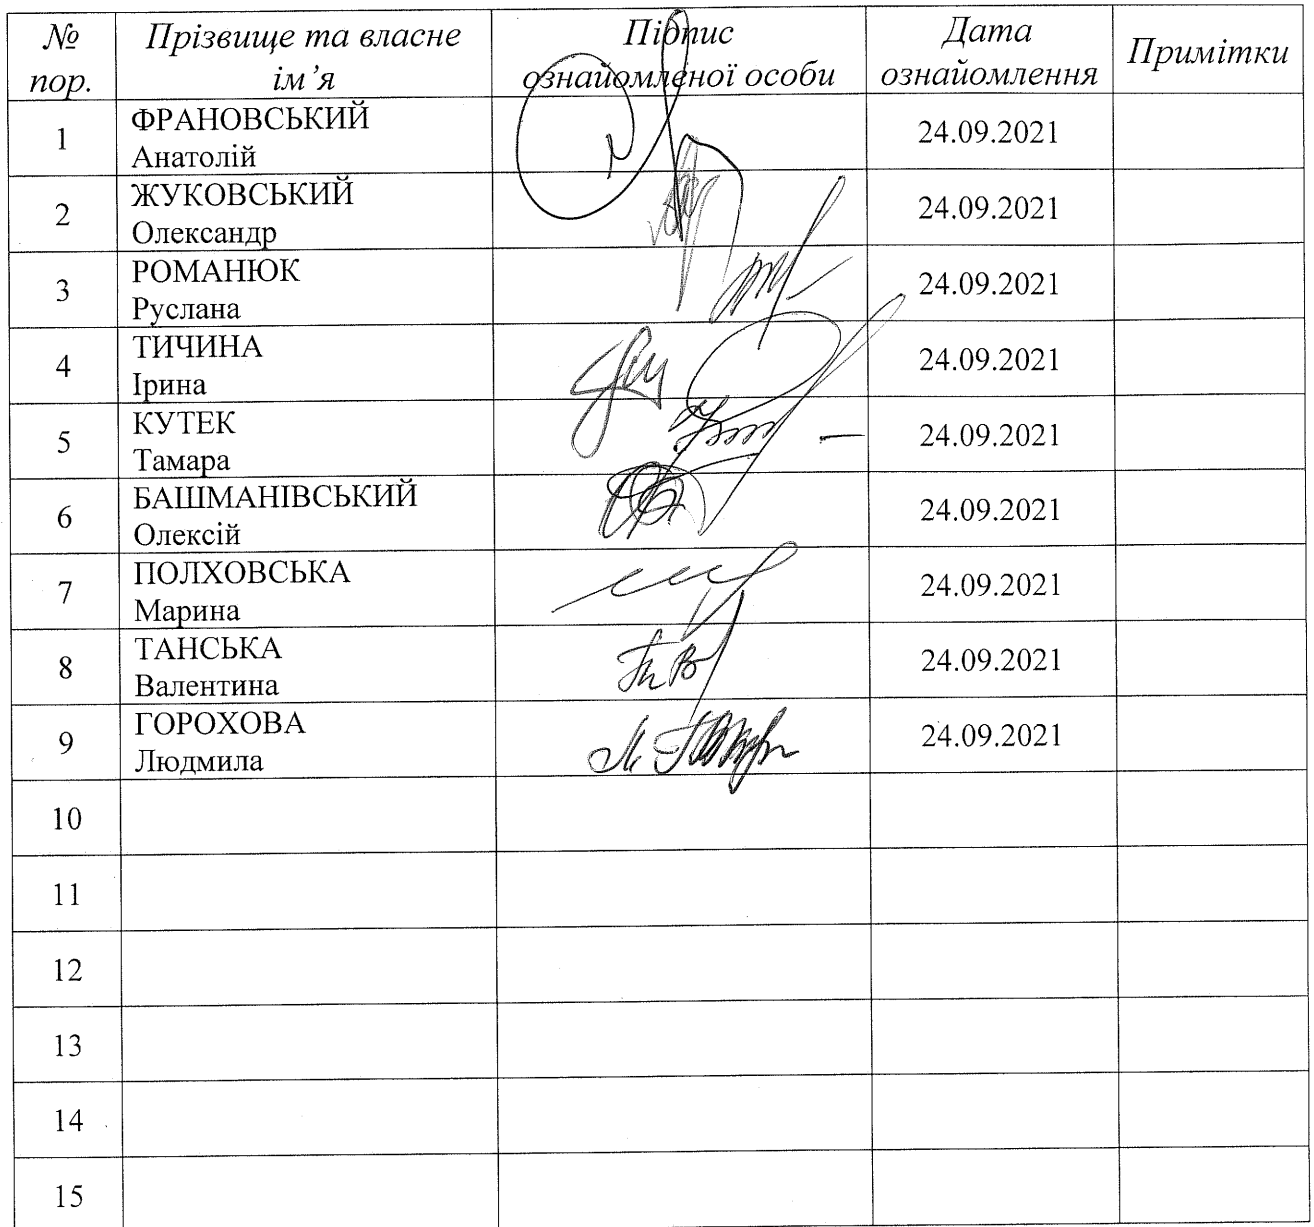 № пор. Прізвище та власне ім’я Підпис ознайомленої особи Дата ознайомлення Примітки
1 ФРАНОВСЬКИЙ Анатолій 24.09.2021
2 ЖУКОВСЬКИЙ Олександр 24.09.2021
3 РОМАНЮК Руслана 24.09.2021
4 ТИЧИНА Ірина 24.09.2021
5 КУТЕК Тамара 24.09.2021
6 БАШМАНІВСЬКИЙ Олексій 24.09.2021
7 ПОЛХОВСЬКА Марина 24.09.2021
8 ТАНСЬКА Валентина 24.09.2021
9 ГОРОХОВА Людмила 24.09.2021
10
11
12
13
14
15